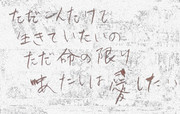 ただ一人だけで
生きていたいの
ただ命の限り
あたしは愛したい